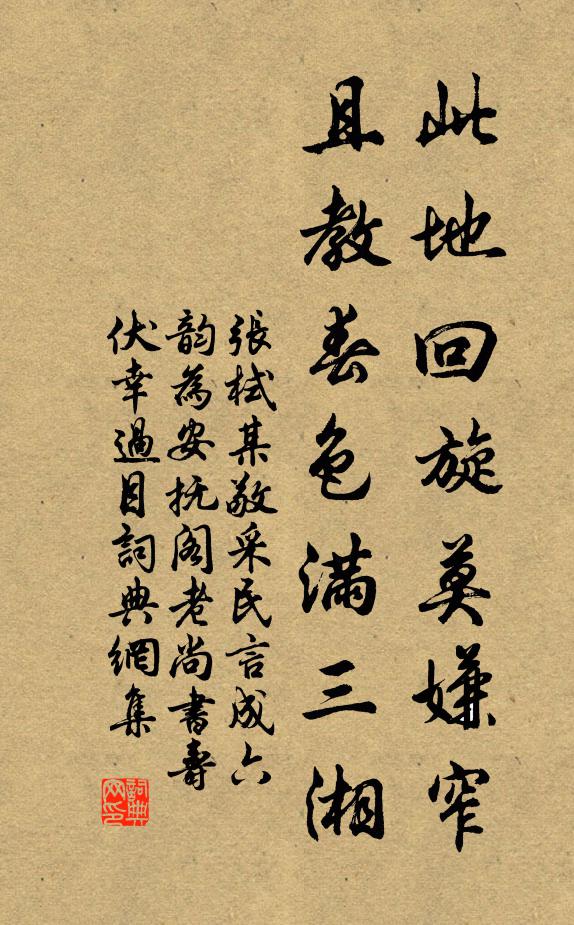 此地回旋莫嫌窄
且教春色滿三湘
張栻某敬采民言成六
韵為安撫閣老尚書壽
伏幸過目詞典網集
詞典网印